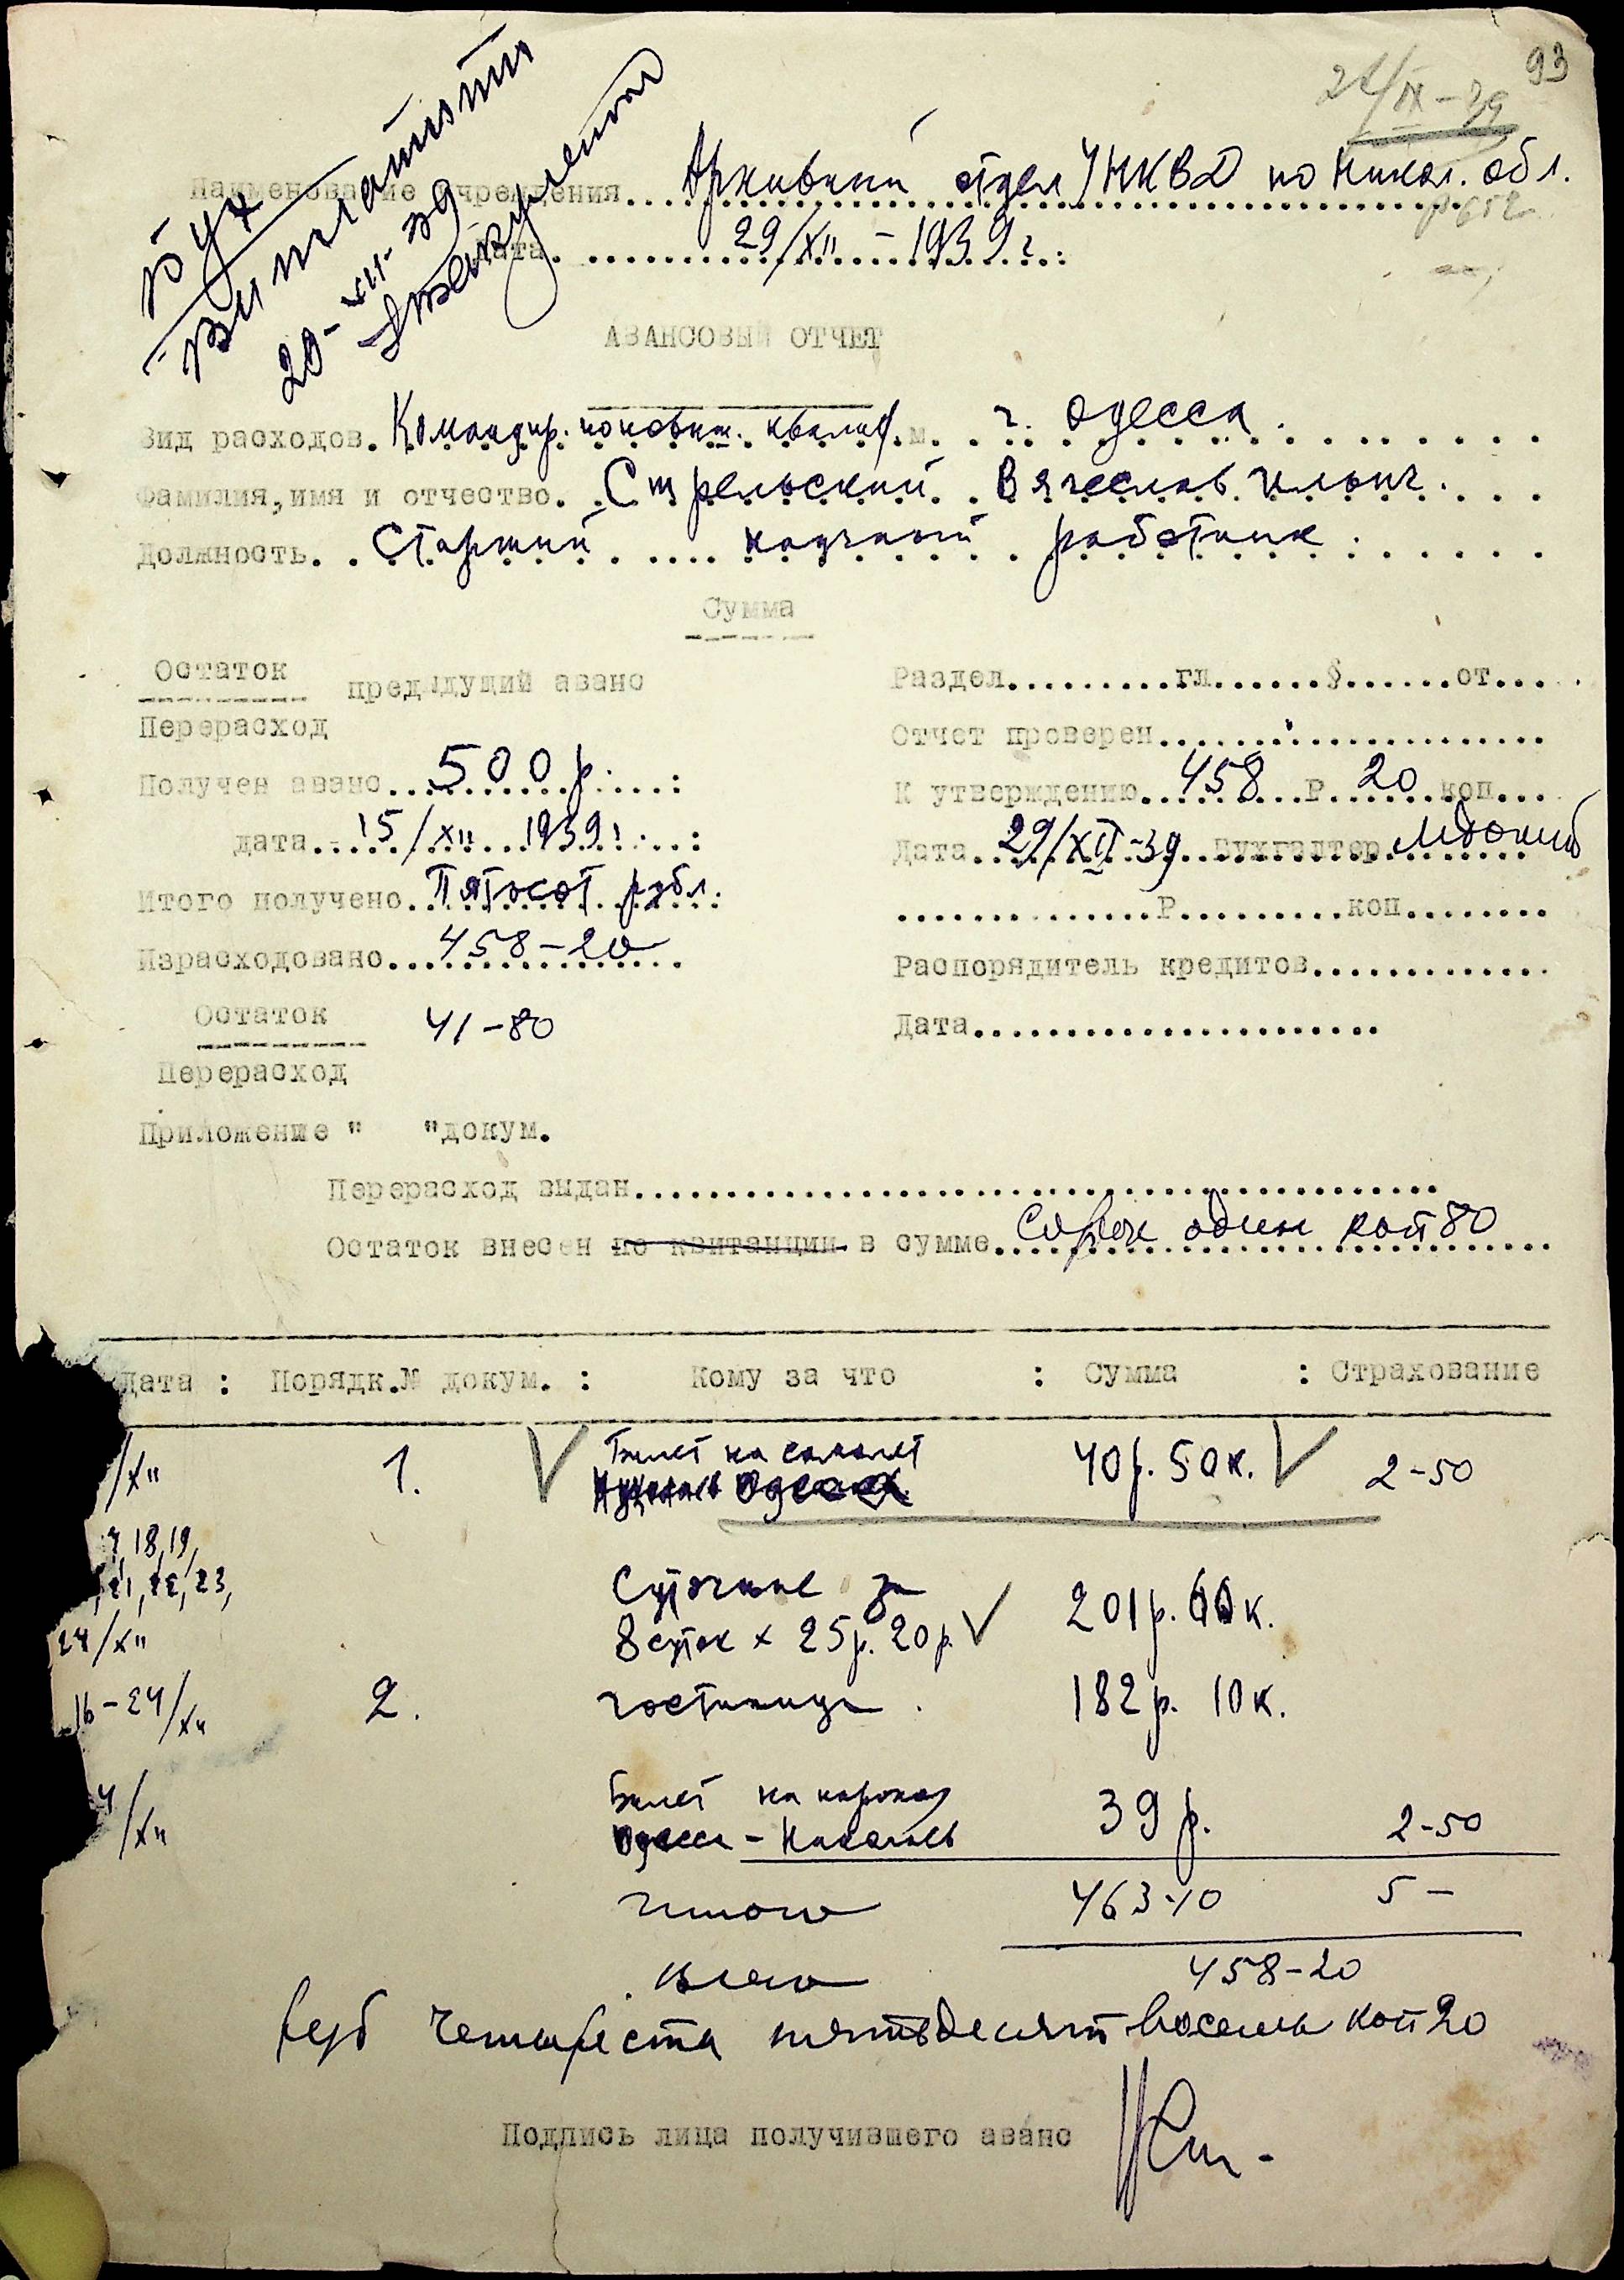 93
Бух
20-XII-39
Наименование учреждения.... Архивный отдел УНКВД по Никол. обл.
Дата. 29/XII - 1939 г.
АВАНСОВЫЙ ОТЧЕТ
Вид расходов. Командир. повыш. квалиф. г. Одесса.
Фамилия, имя и отчество. Стрельский Вячеслав Ильич.
Должность. Старший научный работник.
Сумма
Остаток предыдущий аванс
Перерасход
Получен аванс 500 р.
дата 15/XII 1939 г.
Итого получено. Пятьсот рубл.
Израсходовано 458-20
Остаток 41-80
Перерасход
Приложение " "докум.
Раздел..........гл......§......ст....
Отчет проверен.....................
К утверждению 458 р 20 коп...
Дата 29/XII-39 Бухгалтер
..............р..........коп........
Распорядитель кредитов.............
Дата......................
Перерасход выдан............................................
Остаток внесен по квитанции в сумме Сорок один коп 80
Дата : Порядк.№ докум. : Кому за что : Сумма : Страхование
/XII 1. Билет на самолет 40 р. 50 к. 2-50
Николаев Одесса
18, 19,
21, 22, 23,
24/XII
Суточные за
8 суток x 25 р. 20 р. 201 р. 60 к.
16-24/XII 2. гостиница. 182 р. 10 к.
4/XII Билет на
Одесса - Николаев 39 р. 2-50
Итого 463-10 5-
Всего 458-20
руб Четыреста пятьдесят восемь коп 20
Подпись лица получившего аванс